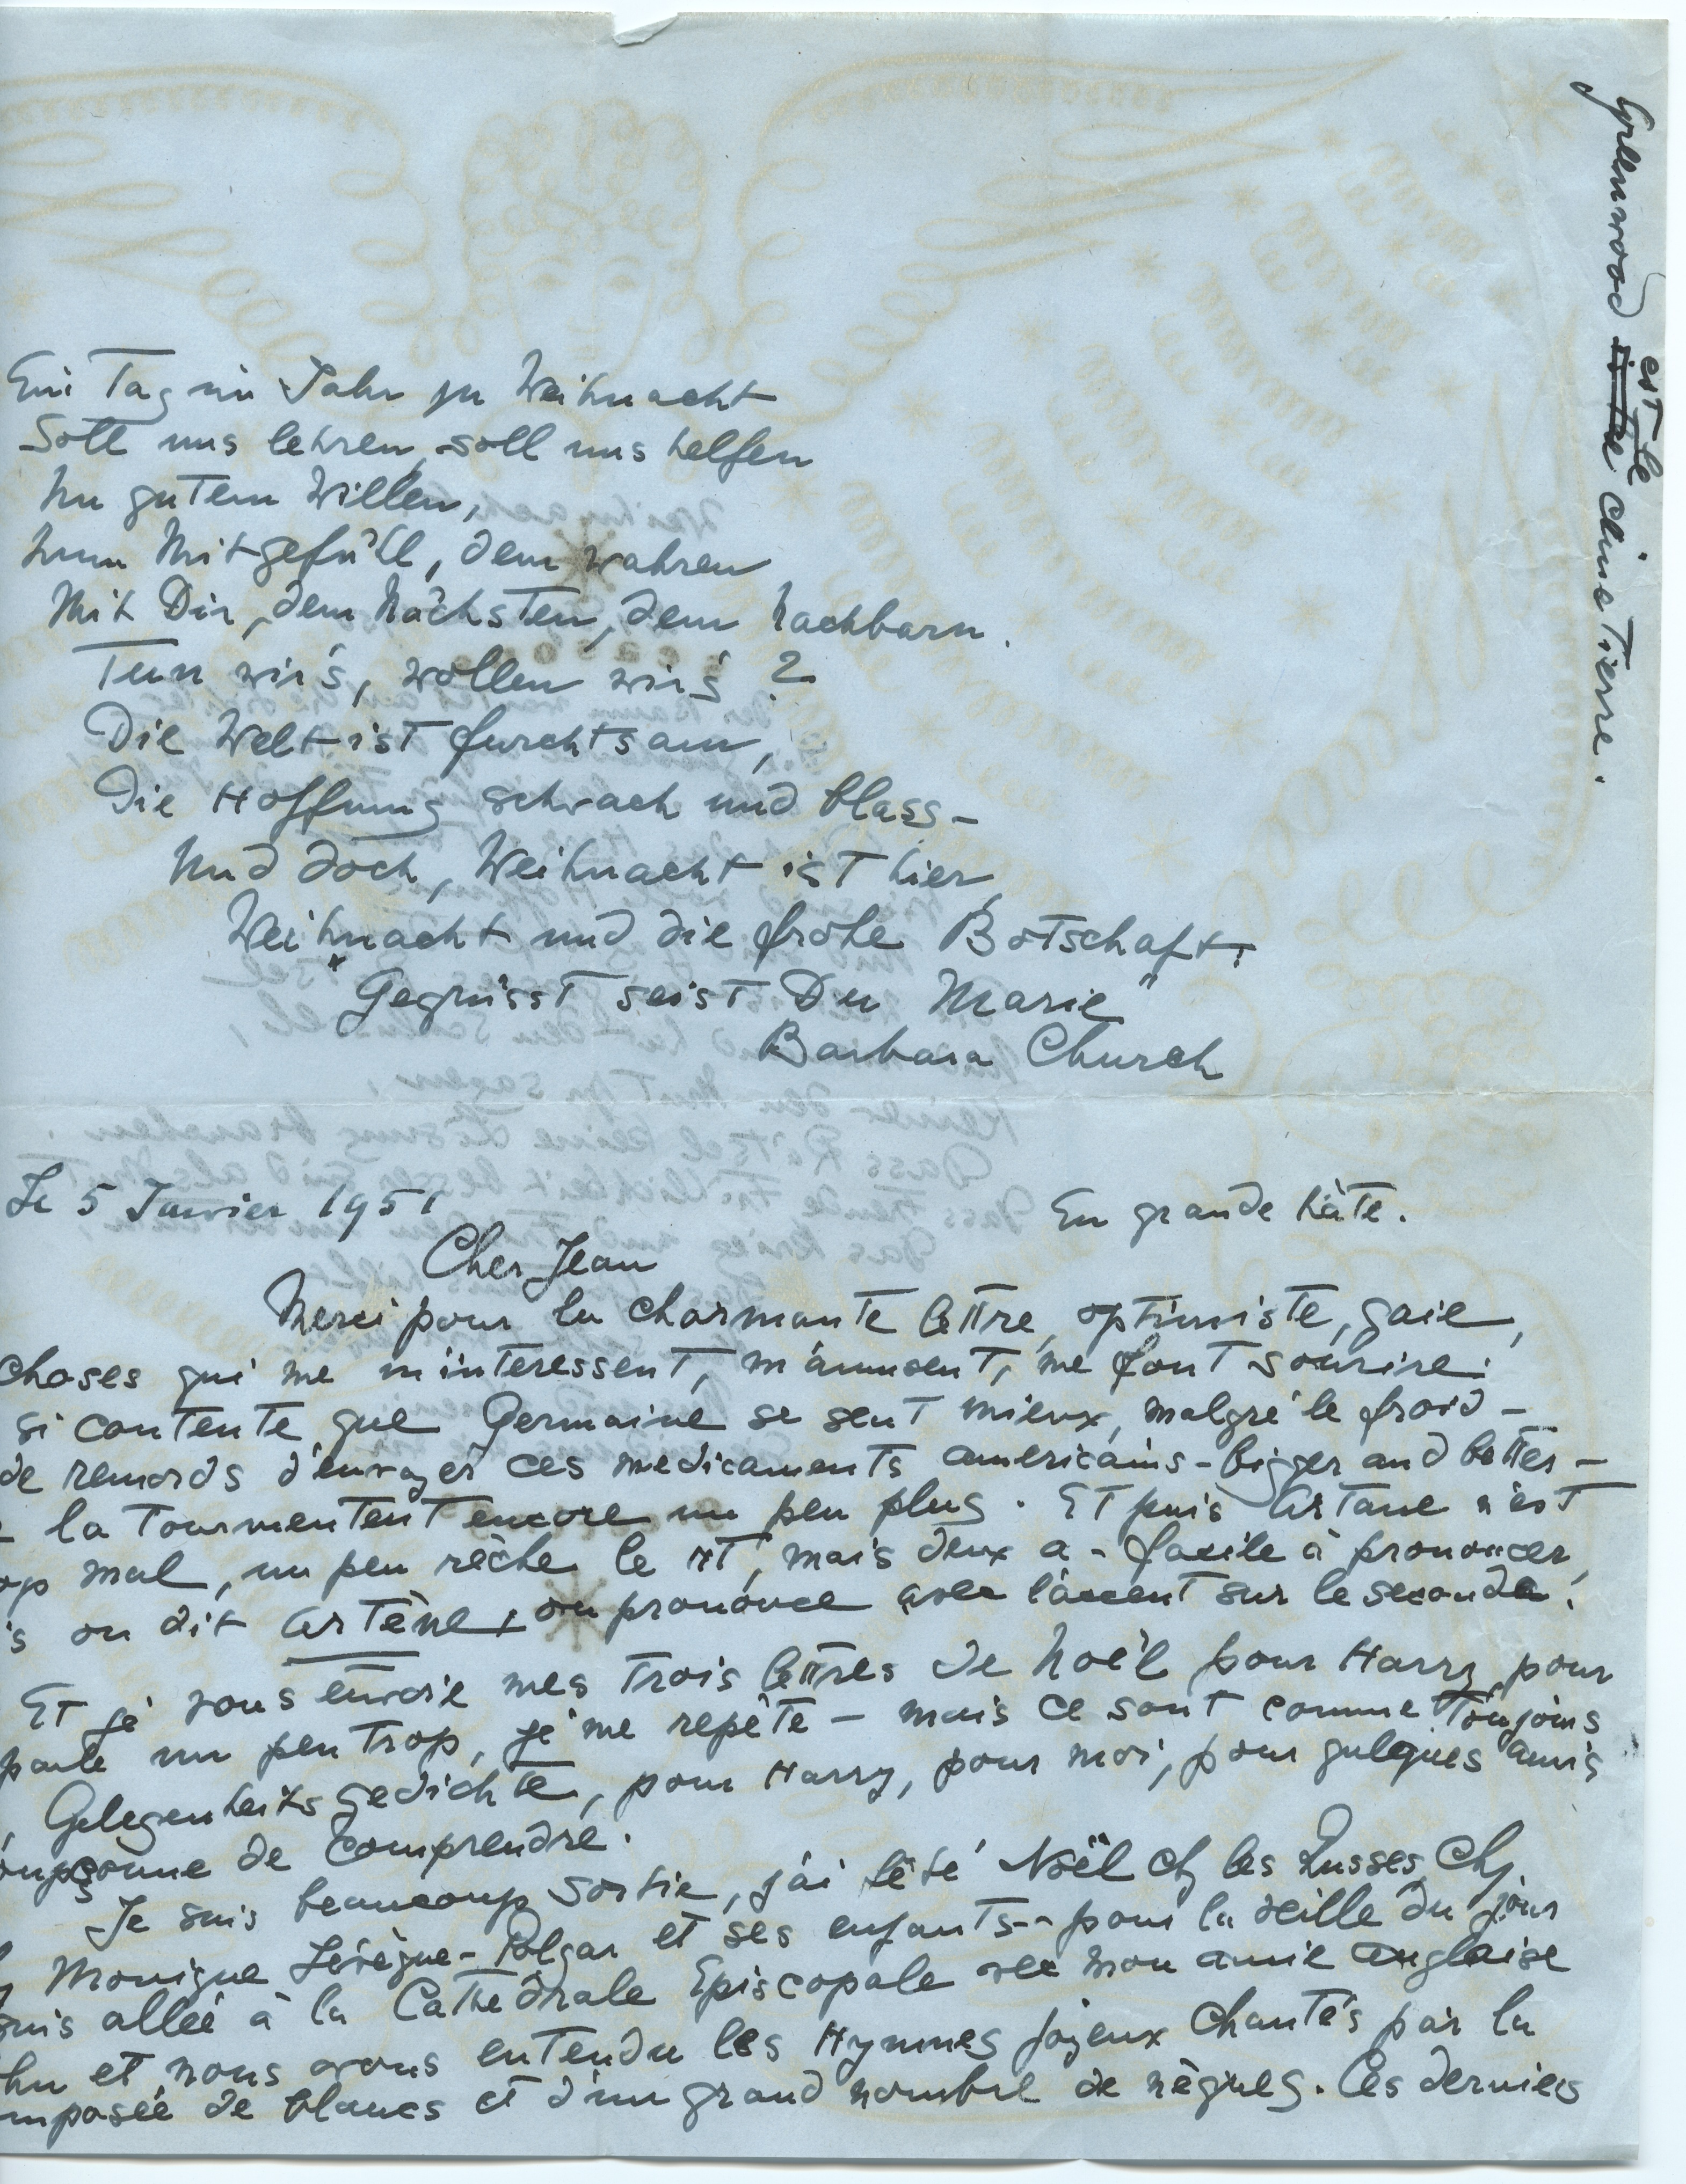 Greenwood est le cimetierre.
Ein Tag im Jahr zu Weihnacht
Soll uns lehren, soll uns helfen
Zu gutem Willen,
Zum Mitgefühl, dem wahren
Mit Dir, dem Nächsten, dem Nachbarn.
Tun wir's, wollen wir's?
Die Welt ist furchtsam,
Die Hoffnung schwach und blass –
Und doch, Weihnacht ist hier,
Weihnacht und die frohe Botschaft:
"Gegrüsst seist Du Marie"
Barbara Church
Le 5 Janvier 1951
En grande hâte.
Cher Jean
Merci pour la charmante lettre, optimiste, gaie,
choses qui me m'interessent, m'amusent, me font sourire.
si contente que Germaine se sent mieux, malgré le froid –
de remords d'envoyer ces medicaments americains – bigger and better –
la tourmentent encore un peu plus. Et puis Artane n'est
op mal, un peu rêche le rt, mais deux a – facile à prononcer,
's on dit Artène, on prononce avec l'accent sur le seconde.
Et je vous envoie mes trois lettres de Noël pour Harry, pour
parle un peu trop, je me repète – mais ce sont comme toujours
Gelegenheitsgedichte, pour Harry, pour moi, pour qulques amis
oupçonne de comprendre.
Je suis beaucoup sortie, j'ai fêté Noël chz les Russes, chz
Monique Levêque-Polgar et ses enfants – pour la veille du jour
suis allée à la Cathédrale Episcopale avec mon amie anglaise
et nous avons entendu les Hymnes joyeux chantés par la
mposée de blancs et d'un grand nombre de nègres. Ces derniers